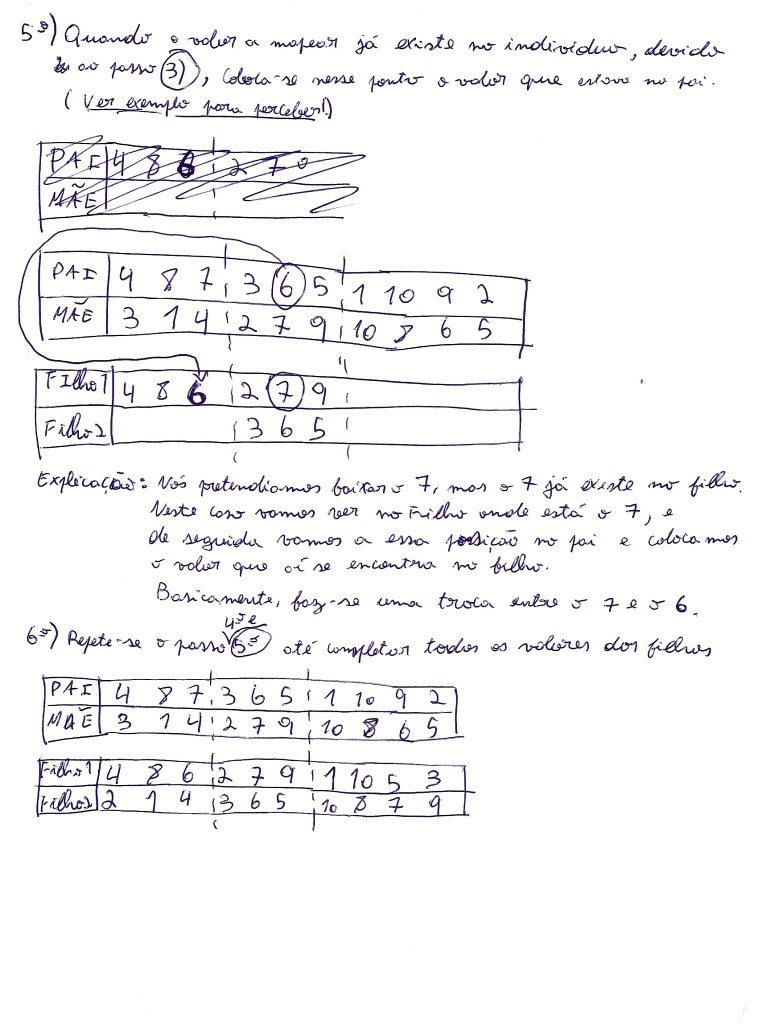 5º) Quando o valor a mapear já existe no individuo, devido
ao passo 3), coloca-se nesse ponto o valor que estava no pai.
(Ver exemplo para perceber!)
PAI 4 8 6 2 7
MÃE
PAI 4 8 7 3 6 5 1 10 9 2
MÃE 3 1 4 2 7 9 10 8 6 5
FIlho1 4 8 6 2 7 9
Filho2 3 6 5
Explicação: Nós pretendiamos baixar o 7, mas o 7 já existe no filho.
Neste caso vamos ver no Filho onde está o 7, e
de seguida vamos a essa posição no pai e colocamos
o valor que aí se encontra no filho.
Basicamente, faz-se uma troca entre o 7 e o 6.
4º e
6º) Repete-se o passo 5º até completar todos os valores dos filhos
PAI 4 8 7 3 6 5 1 10 9 2
MÃE 3 1 4 2 7 9 10 8 6 5
Filho1 4 8 6 2 7 9 1 10 5 3
Filho2 2 1 4 3 6 5 10 8 7 9